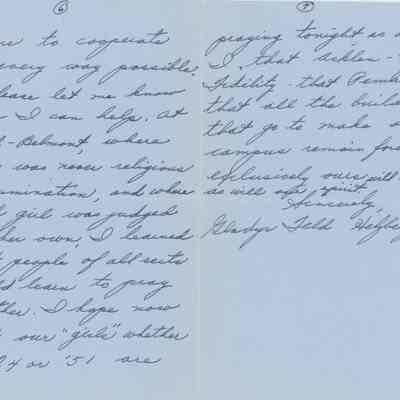 6
to cooperate
every way possible.
let me know
I can help. At
-Belmont, where
was never religious
, and where
girl was judged
her own, I learned
people of all sects
learn to pray
. I hope now
our "girls" whether
4 or '51 are
7
praying tonight as
I, that Acklen-
Fidility - that
that all the
that go to make
campus remain
exclusively ours will
as will our spirit.
Sincerely,
Gladys Feld